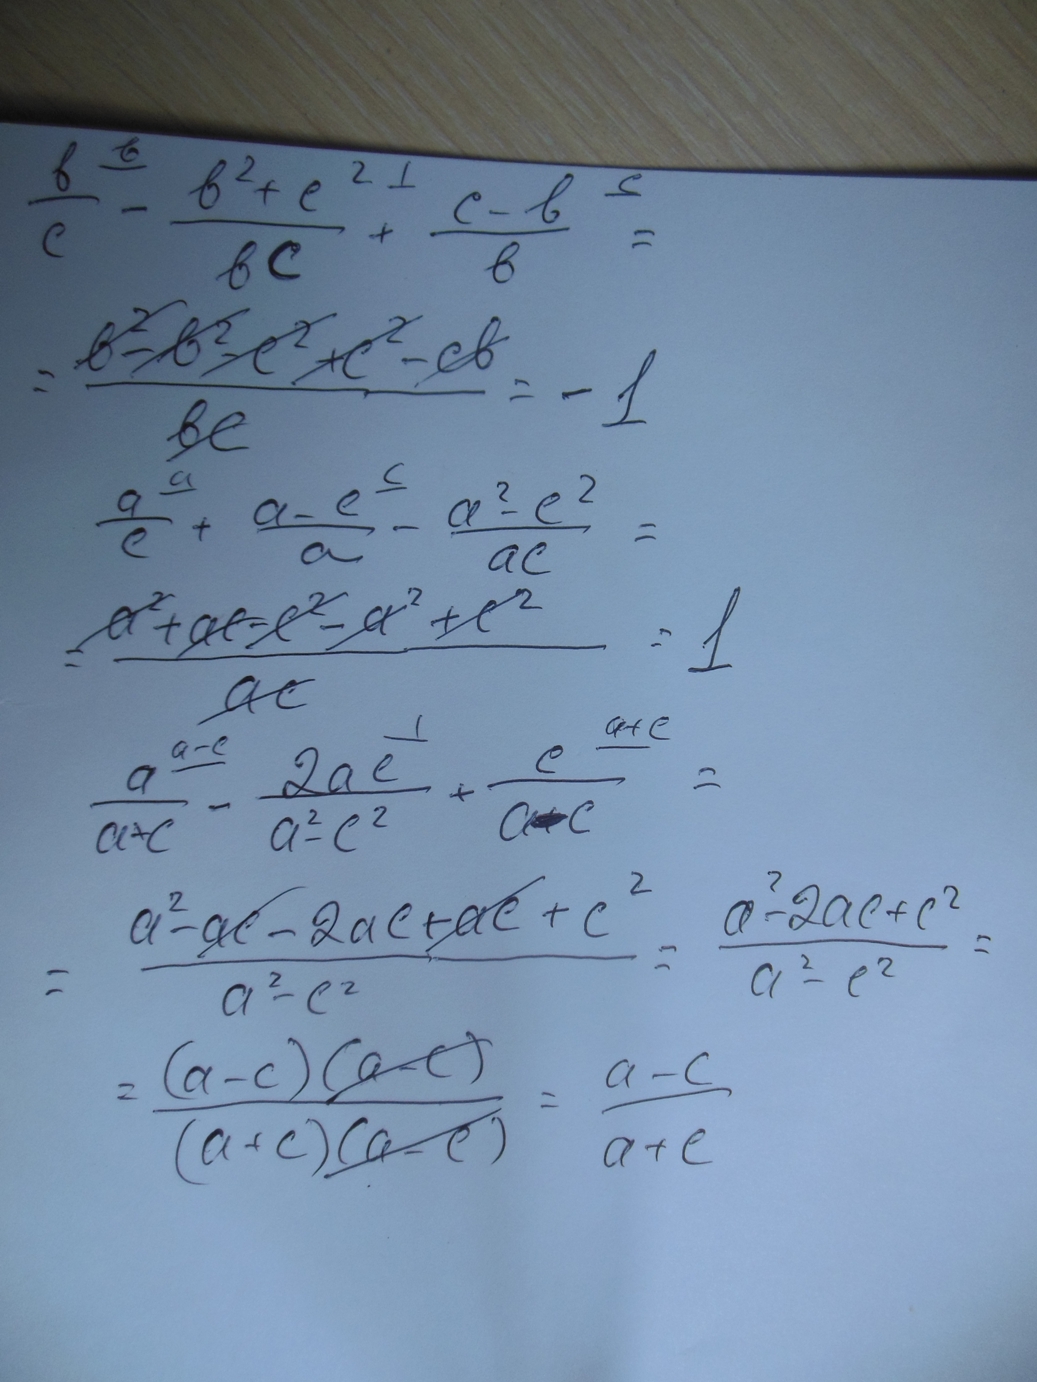 b/c ᵇ - (b²+c²)/bc ¹ + (c-b)/b ᶜ =
= (b²-b²-c²+c²-cb)/bc = -1
a/c ᵃ + (a-c)/a ᶜ - (a²-c²)/ac =
= (a²+ac-c²-a²+c²)/ac = 1
a/(a+c) ᵃ⁻ᶜ - 2ac/(a²-c²) ¹ + c/(a-c) ᵃ⁺ᶜ =
= (a²-ac-2ac+ac+c²)/(a²-c²) = (a²-2ac+c²)/(a²-c²) =
= (a-c)(a-c)/(a+c)(a-c) = (a-c)/(a+c)